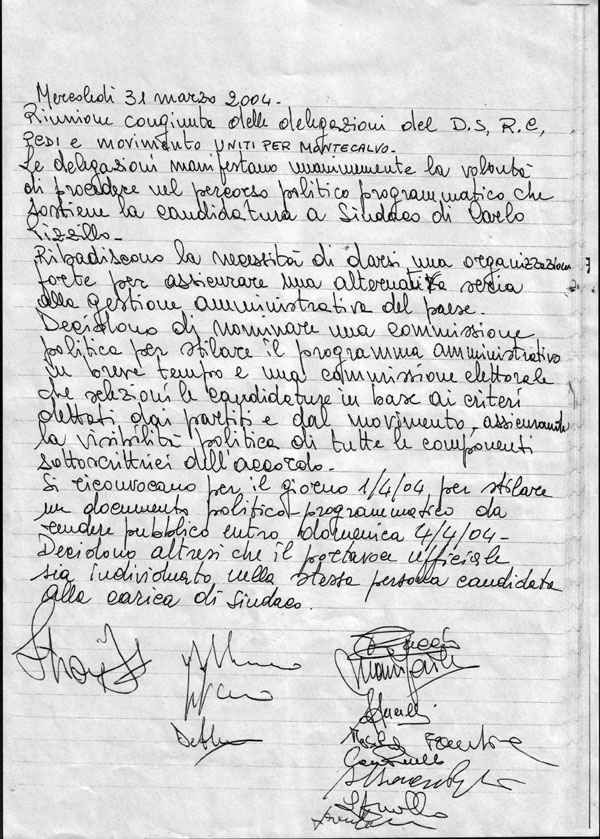 Mercoledì 31 marzo 2004.
Riunione congiunta delle delegazioni del D.S, R.C,
PCDI e movimento UNITI PER MONTECALVO.
Le delegazioni manifestano unanimemente la volontà
di procedere nel percorso politico programmatico che
sostiene la candidatura a Sindaco di Carlo
Pizzillo.
Ribadiscono la necessità di darsi una organizzazione
forte per assicurare una alternativa seria
alla gestione amministrativa del paese.
Decidono di nominare una commissione
politica per stilare il programma amministrativo
in breve tempo e una commissione elettorale
che selezioni le candidature in base ai criteri
dettati dai partiti e dal movimento, assicurando
la visibilità politica di tutte le componenti
sottoscrittrici dell'accordo.
Si riconvocano per il giorno 1/4/04 per stilare
un documento politico-programmatico da
rendere pubblico entro domenica 4/4/04-
Decidono altresì che il portavoce ufficiale
sia individuato nella stessa persona candidata
alla carica di Sindaco.